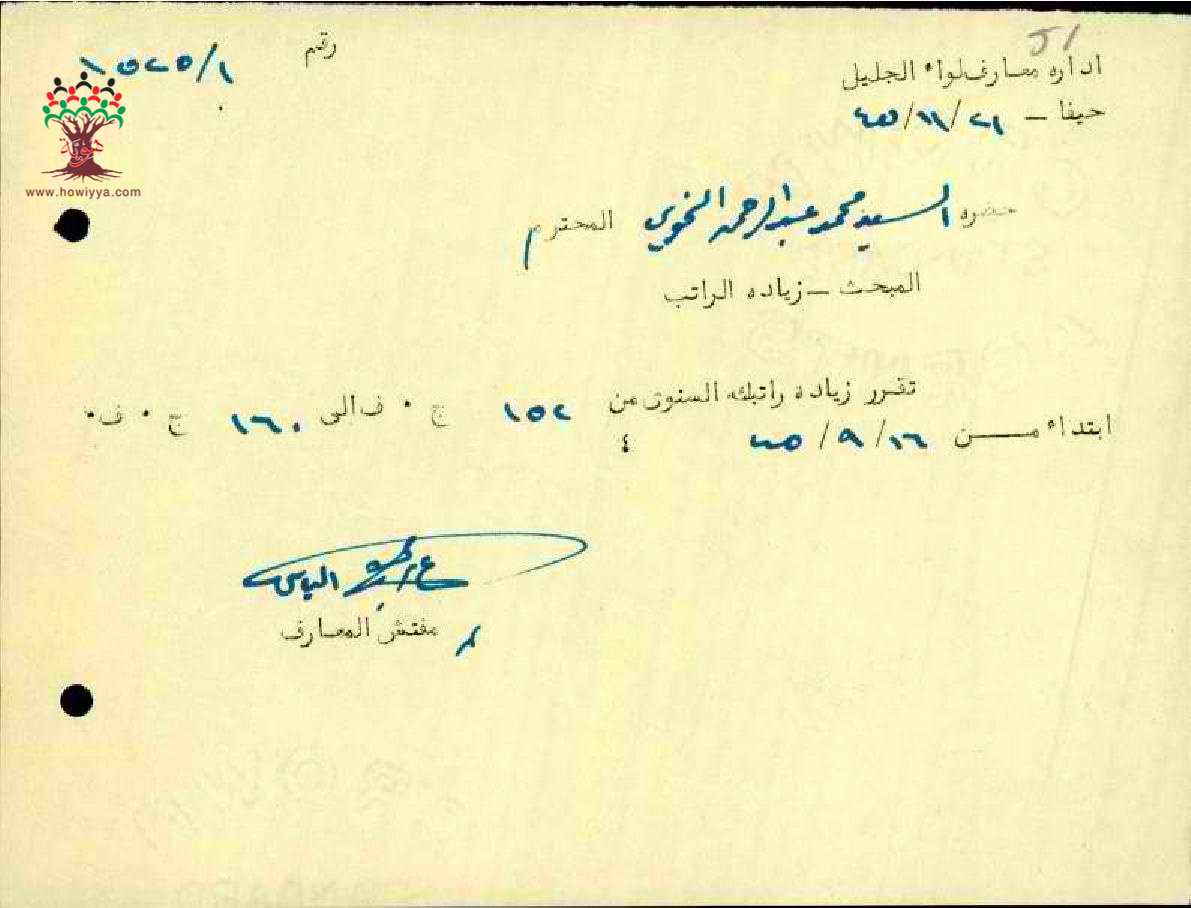 رقم ١٥٢٥/١
51
اداره معارف لواء الجليل
حيفا – ٢١/١١/٤٥
هوية
www.howiyya.com
حضره السيد محمد عبد الرحمن النحوي المحترم
المبحث – زياده الراتب
تقرر زيادة راتبك السنوى من ١٥٢ ج ٠ ف الى ١٦٠ ج ٠ ف٠
ابتداء مــن ١٦/٩/٤٥
الياس
مفتش المعارف